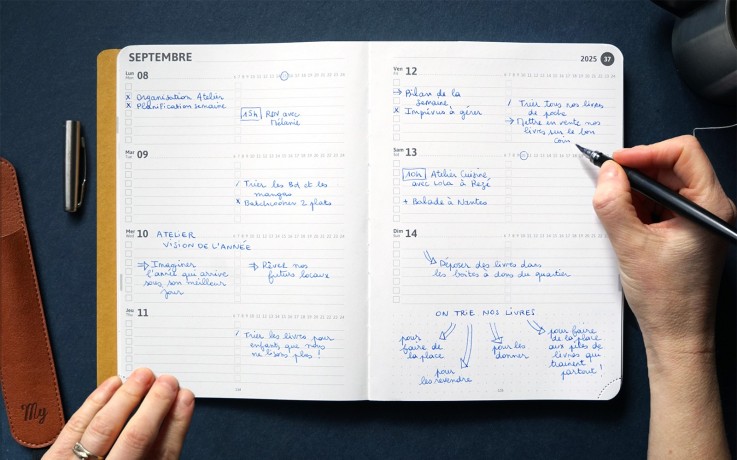 SEPTEMBRE
Lun 08
x Organisation Atelier
x Planification semaine
15h RDV avec
Mélanie
Mar 09
/ Trier les Bd et les
mangas
x Batchcooker 2 plats
Mer 10 ATELIER
VISION DE L'ANNÉE
⇒ Imaginer
l'année qui arrive
sous son meilleur
jour
⇒ Rêver nos
futurs locaux
Jeu 11
/ Trier les livres pour
enfant, que nous
ne lisons plus !
2025 37
Ven 12
→ Bilan de la
semaine
x Imprévus à gérer
/ Trier tous nos livres
de poche
→ Mettre en vente nos
livres sur le bon
coin
Sam 13
10h Atelier Cuisine
avec Lola à Rezé
+ Balade à Nantes
Dim 14
Déposer des livres dans
les boîtes à dons du quartier
ON TRIE NOS LIVRES
pour
faire de
la place
pour
les revendre
pour les
donner
pour faire
de la place
aux piles de
livres qui
traînent
partout !
My